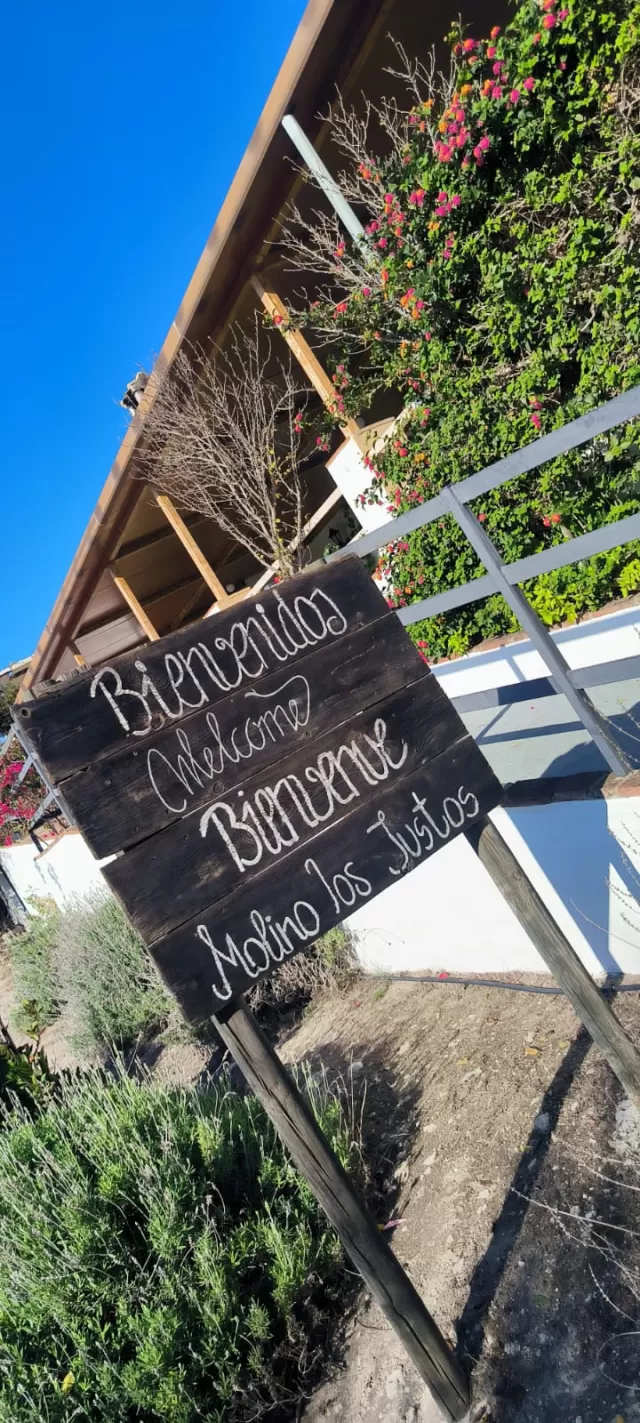 Bienvenidos
Welcome
Bienvenue
Molino los Justos